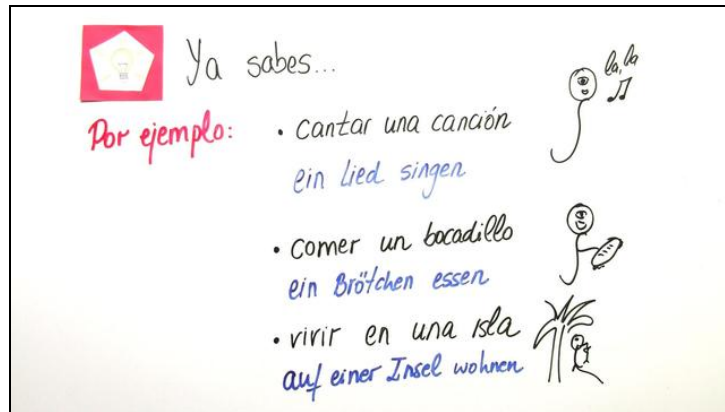 Ya sabes...
la, la
Por ejemplo:
• cantar una canción
ein Lied singen
• comer un bocadillo
ein Brötchen essen
• vivir en una isla
auf einer Insel wohnen